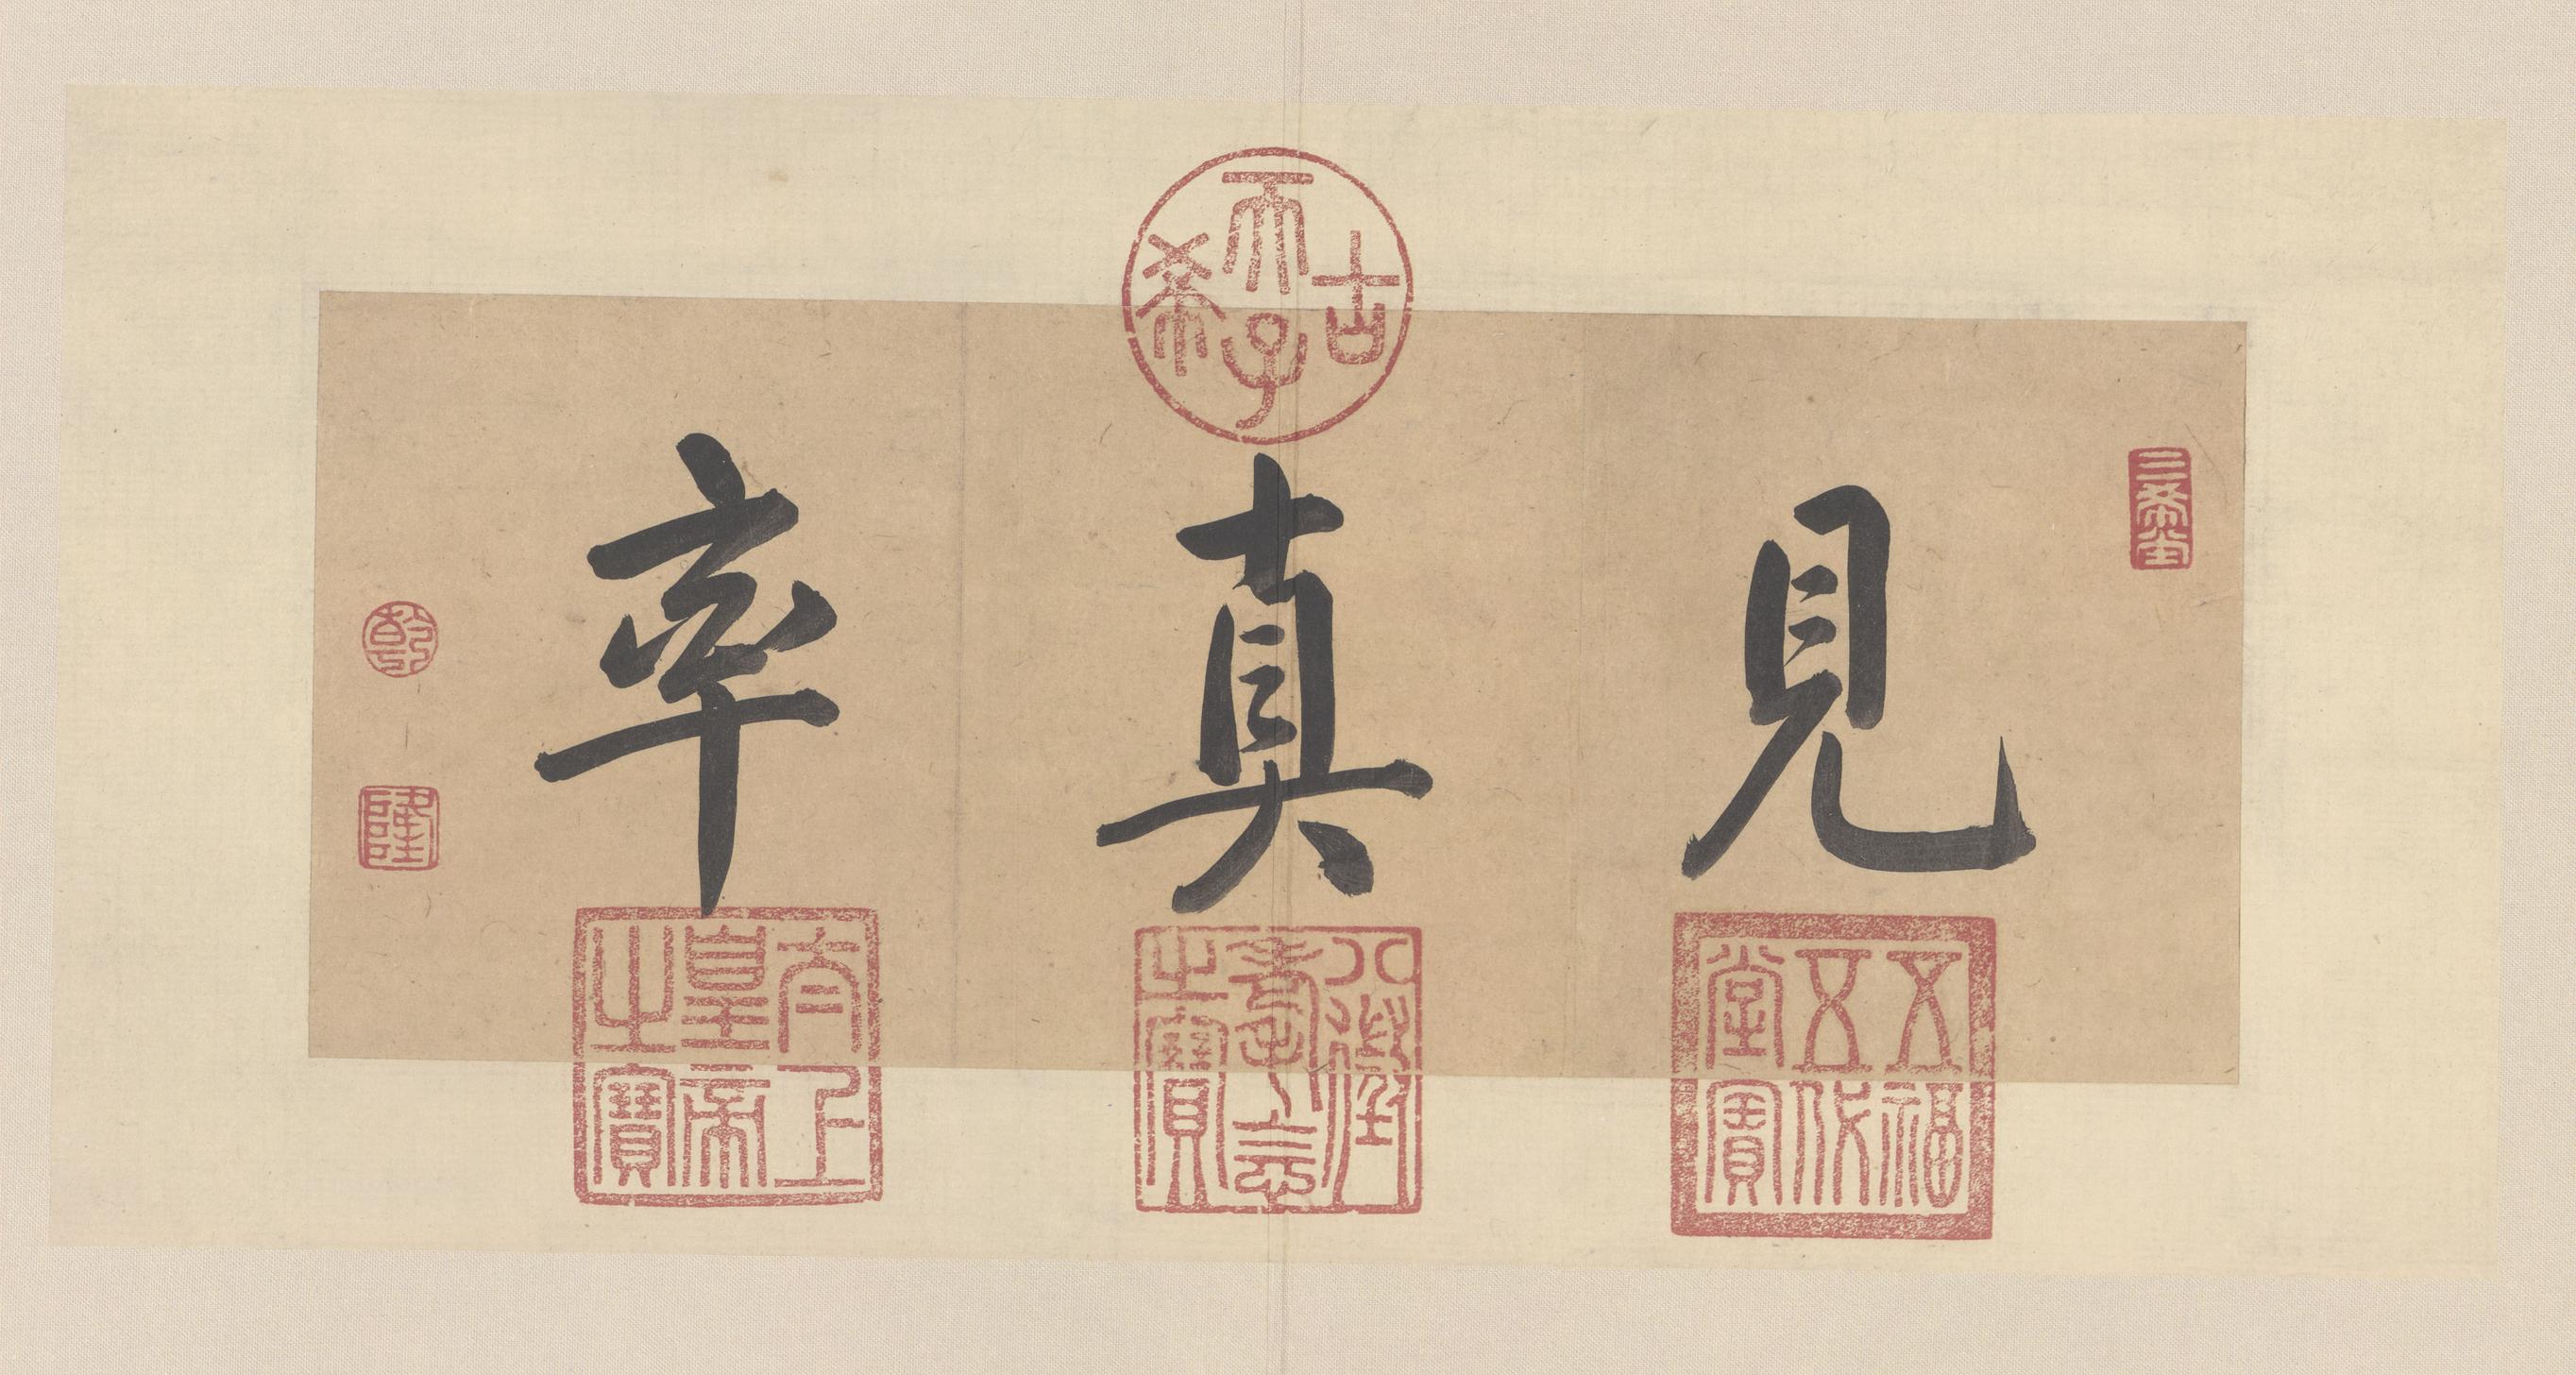 見真率
三希堂
古希天子
五福五代堂寶
八徵耄念之寶
太上皇帝之寶
乾
隆